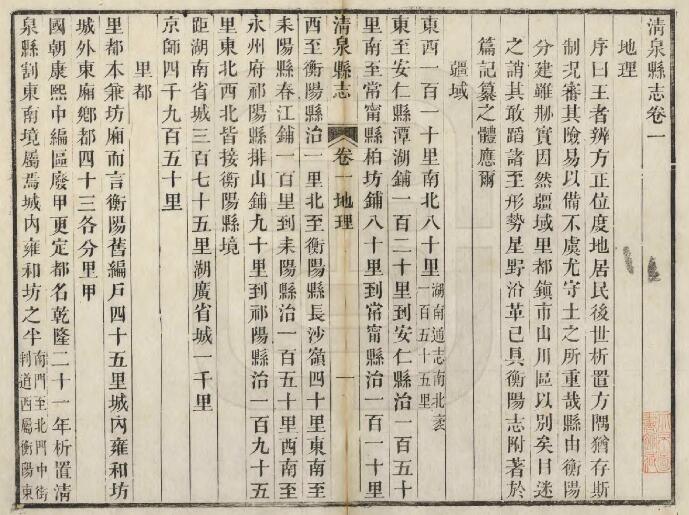 清泉縣志卷一
地理
序曰王者辨方正位度地居民後世析置方隅猶存斯
制況審其險易以備不虞尤守土之所重哉縣由衡陽
分建雖刱實因然疆域里都鎮市山川區以别矣目迷
之誚其敢蹈諸至形勢星野沿革已具衡陽志附著於
篇記纂之體應爾
疆域
東西一百一十里南北八十里湖南通志南北袤一百五十五里
東至安仁縣潭湖鋪一百二十里到安仁縣治一百五十
里南至常甯縣柏坊鋪八十里到常甯縣治一百一十里
清泉縣志 卷一地理 一
西至衡陽縣治一里北至衡陽縣長沙嶺四十里東南至
耒陽縣春江鋪一百里到耒陽縣治一百五十里西南至
永州府祁陽縣排山鋪九十里到祁陽縣治一百九十五
里東北西北皆接衡陽縣境
距湖南省城三百七十五里湖廣省城一千里
京師四千九百五十里
里都
里都本兼坊廂而言衡陽舊編戸四十五里城内雍和坊
城外東廂鄉都四十三各分里甲
國朝康熙中編區廢甲更定都名乾隆二十一年析置清
泉縣割東南境屬焉城内雍和坊之半南門至北門中街判道西屬衡陽東